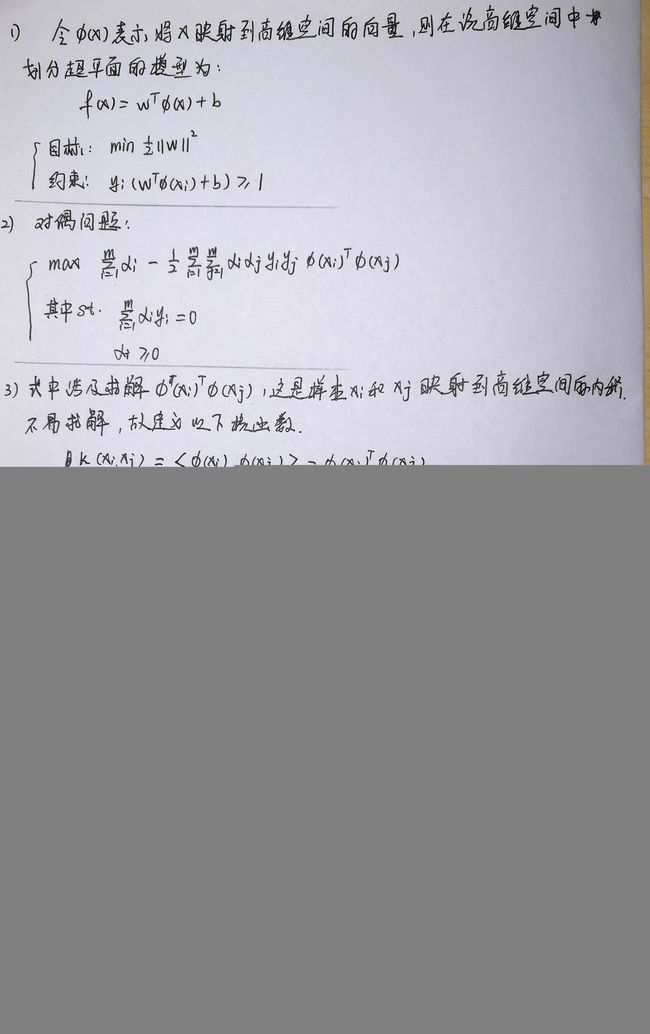 1) 令φ(x)表示将x映射到高维空间的向量,则在该高维空间中
划分超平面的模型为:
f(x) = wᵀφ(x)+b
目标: min ½||w||²
约束: yᵢ(wᵀφ(xᵢ)+b) ≥ 1
2) 对偶问题:
max Σᵢ₌₁ᵐ αᵢ - ½ Σᵢ₌₁ᵐ Σⱼ₌₁ᵐ αᵢαⱼyᵢyⱼ φ(xᵢ)ᵀφ(xⱼ)
其中 st. Σᵢ₌₁ᵐ αᵢyᵢ = 0
αᵢ ≥ 0
3) 式中涉及求解φ(xᵢ)ᵀφ(xⱼ),这是样本xᵢ和xⱼ映射到高维空间的内积,
不易求解,故定义以下核函数.
K(xᵢ,xⱼ) = <φ(xᵢ),φ(xⱼ)> = φ(xᵢ)ᵀφ(xⱼ)